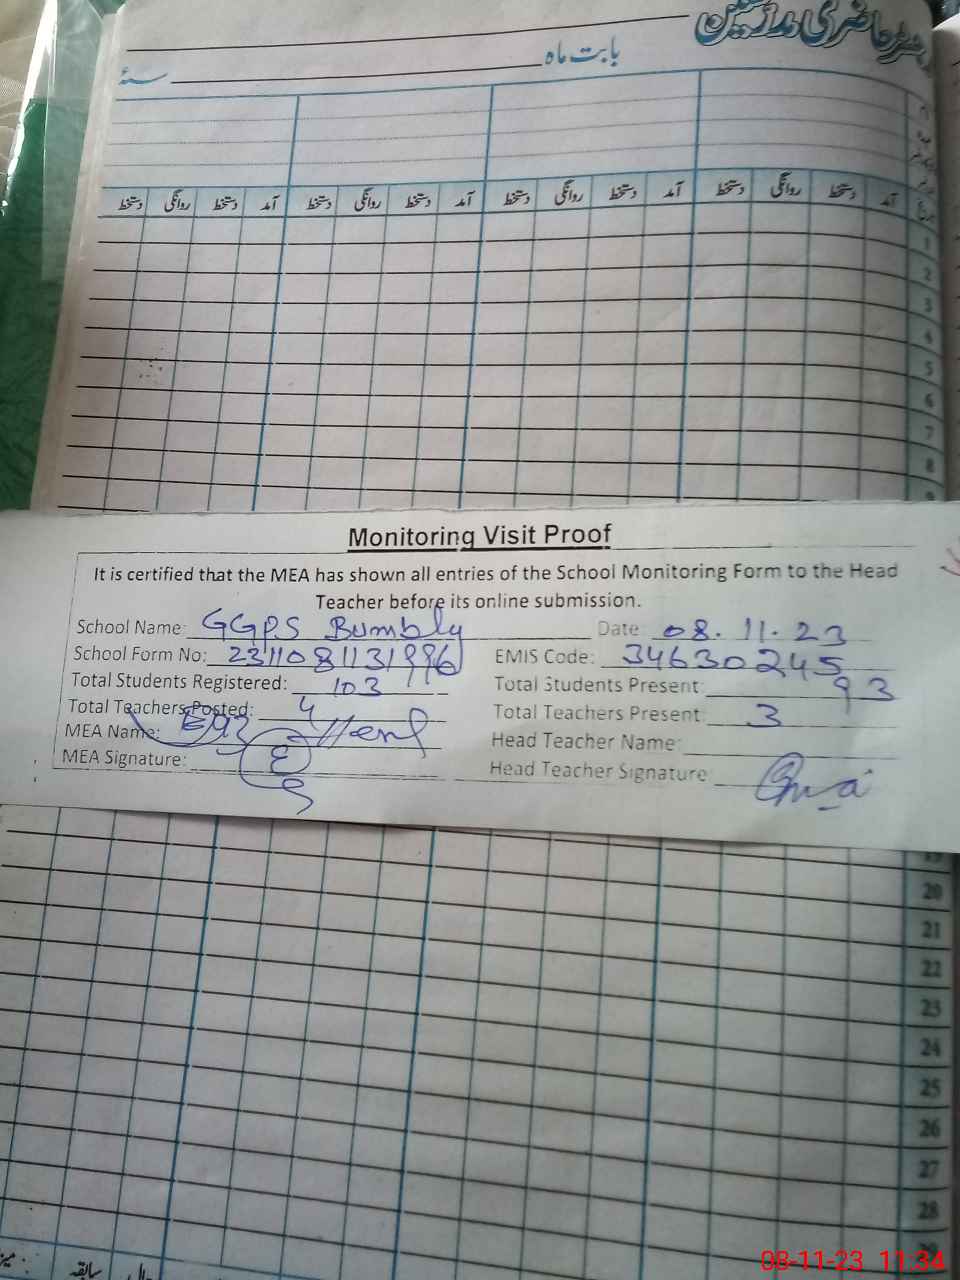 رجسٹر حاضری مدرسین
بابت ماہ سنۂ
آمد دستخط روانگی دستخط آمد دستخط روانگی دستخط آمد دستخط روانگی دستخط آمد دستخط روانگی دستخط
1
2
3
4
5
6
7
8
Monitoring Visit Proof
It is certified that the MEA has shown all entries of the School Monitoring Form to the Head
Teacher before its online submission.
School Name: GGPS Bumbly Date: 08.11.23
School Form No: 2311081131996 EMIS Code: 34630245
Total Students Registered: 103 Total Students Present: 93
Total Teachers Posted: 4 Total Teachers Present: 3
MEA Name: Head Teacher Name:
MEA Signature: Head Teacher Signature:
19
20
21
22
23
24
25
26
27
28
سابقہ
08-11-23 11:34